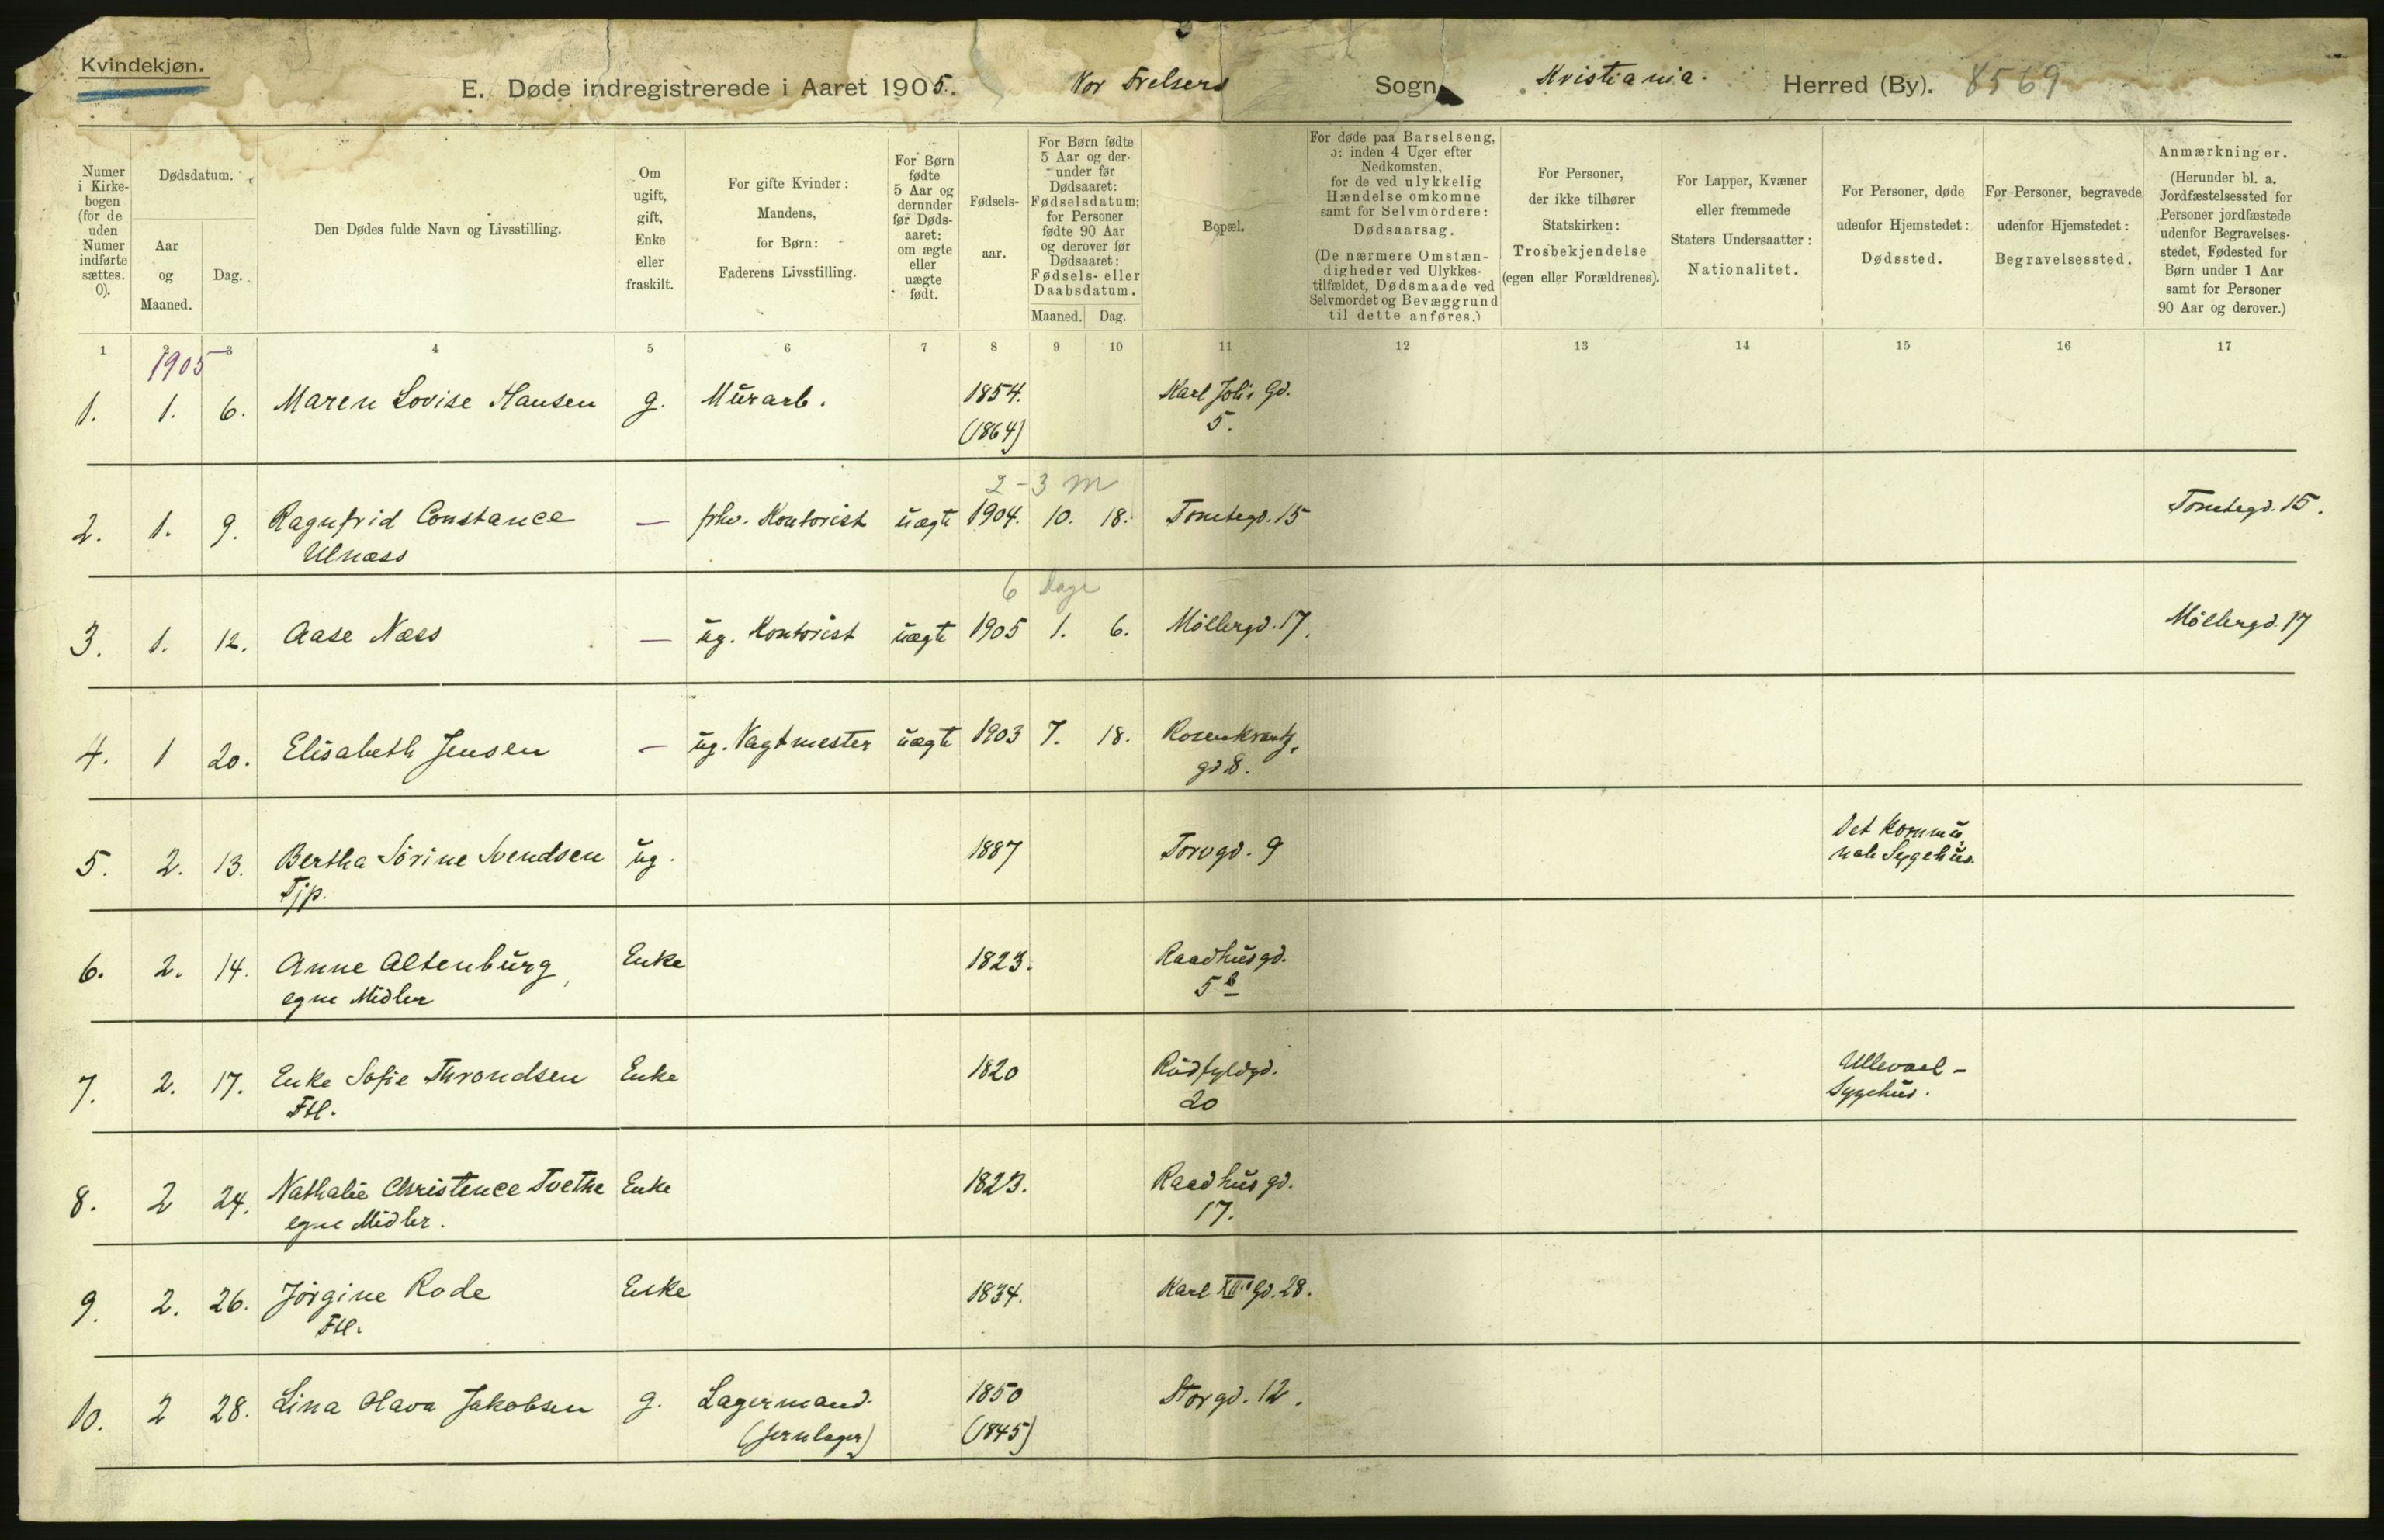 Kvindekjøn.
E. Døde indregistrerede i Aaret 1905. Vor Frelsers Sogn Kristiania. Herred (By). 8569
Numer i Kirke-bogen (for de uden Numer indførte sættes. 0).
Dødsdatum.
Aar og Maaned.
Dag.
Den Dødes fulde Navn og Livsstilling.
Om ugift, gift, Enke eller fraskilt.
For gifte Kvinder: Mandens, for Børn: Faderens Livsstilling.
For Børn fødte 5 Aar og derunder før Døds-aaret: om ægte eller uægte født.
Fødsels-aar.
For Børn fødte 5 Aar og der-under før Dødsaaret: Fødselsdatum; for Personer fødte 90 Aar og derover før Dødsaaret: Fødsels- eller Daabsdatum.
Maaned. Dag.
Bopæl.
For døde paa Barselseng, ɔ: inden 4 Uger efter Nedkomsten, for de ved ulykkelig Hændelse omkomne samt for Selvmordere: Dødsaarsag.
(De nærmere Omstæn-digheder ved Ulykkes-tilfældet, Dødsmaade ved Selvmordet og Bevæggrund til dette anføres.)
For Personer, der ikke tilhører Statskirken: Trosbekjendelse (egen eller Forældrenes).
For Lapper, Kvæner eller fremmede Staters Undersaatter: Nationalitet.
For Personer, døde udenfor Hjemstedet: Dødssted.
For Personer, begravede udenfor Hjemstedet: Begravelsessted.
Anmærkninger. (Herunder bl. a. Jordfæstelsessted for Personer jordfæstede udenfor Begravelses-stedet, Fødested for Børn under 1 Aar samt for Personer 90 Aar og derover.)
1 2 3 4 5 6 7 8 9 10 11 12 13 14 15 16 17
1905
1. 1. 6. Maren Lovise Hansen g. Murarb. 1854. Karl Joh's Gd.
(1864) 5.
2-3 m
2. 1. 9. Ragnfrid Constance — frhv. Kontorist uægte 1904. 10. 18. Tomtegd. 15 Tomtegd. 15.
Ulnæss
6 Dage
3. 1. 12. Aase Næss — ug. Kontorist uægte 1905 1. 6. Møllergd. 17. Møllergd. 17
4. 1 20. Elisabeth Jensen — ug. Vagtmester uægte 1903 7. 18. Rosenkrantz
gd 8.
5. 2. 13. Bertha Sørine Svendsen ug. 1887 Torvgd. 9 Det Kommu-
Tjp. nale Sygehus.
6. 2. 14. Anne Altenburg, Enke 1823. Raadhusgd.
egne Midler 5 b
7. 2. 17. Enke Sofie Throndsen Enke 1820 Rødfyldgd. Ullevaal-
Ftl. 20 Sygehus.
8. 2 24. Nathalie Christence Tvethe Enke 1823. Raadhusgd.
egne Midler. 17.
9. 2. 26. Jørgine Rode Enke 1834. Karl XII's Gd. 28.
Ftl.
10. 2 28. Lina Olava Jakobsen g. Lagermand. 1850 Storgd. 12.
(Jernlager) (1845)